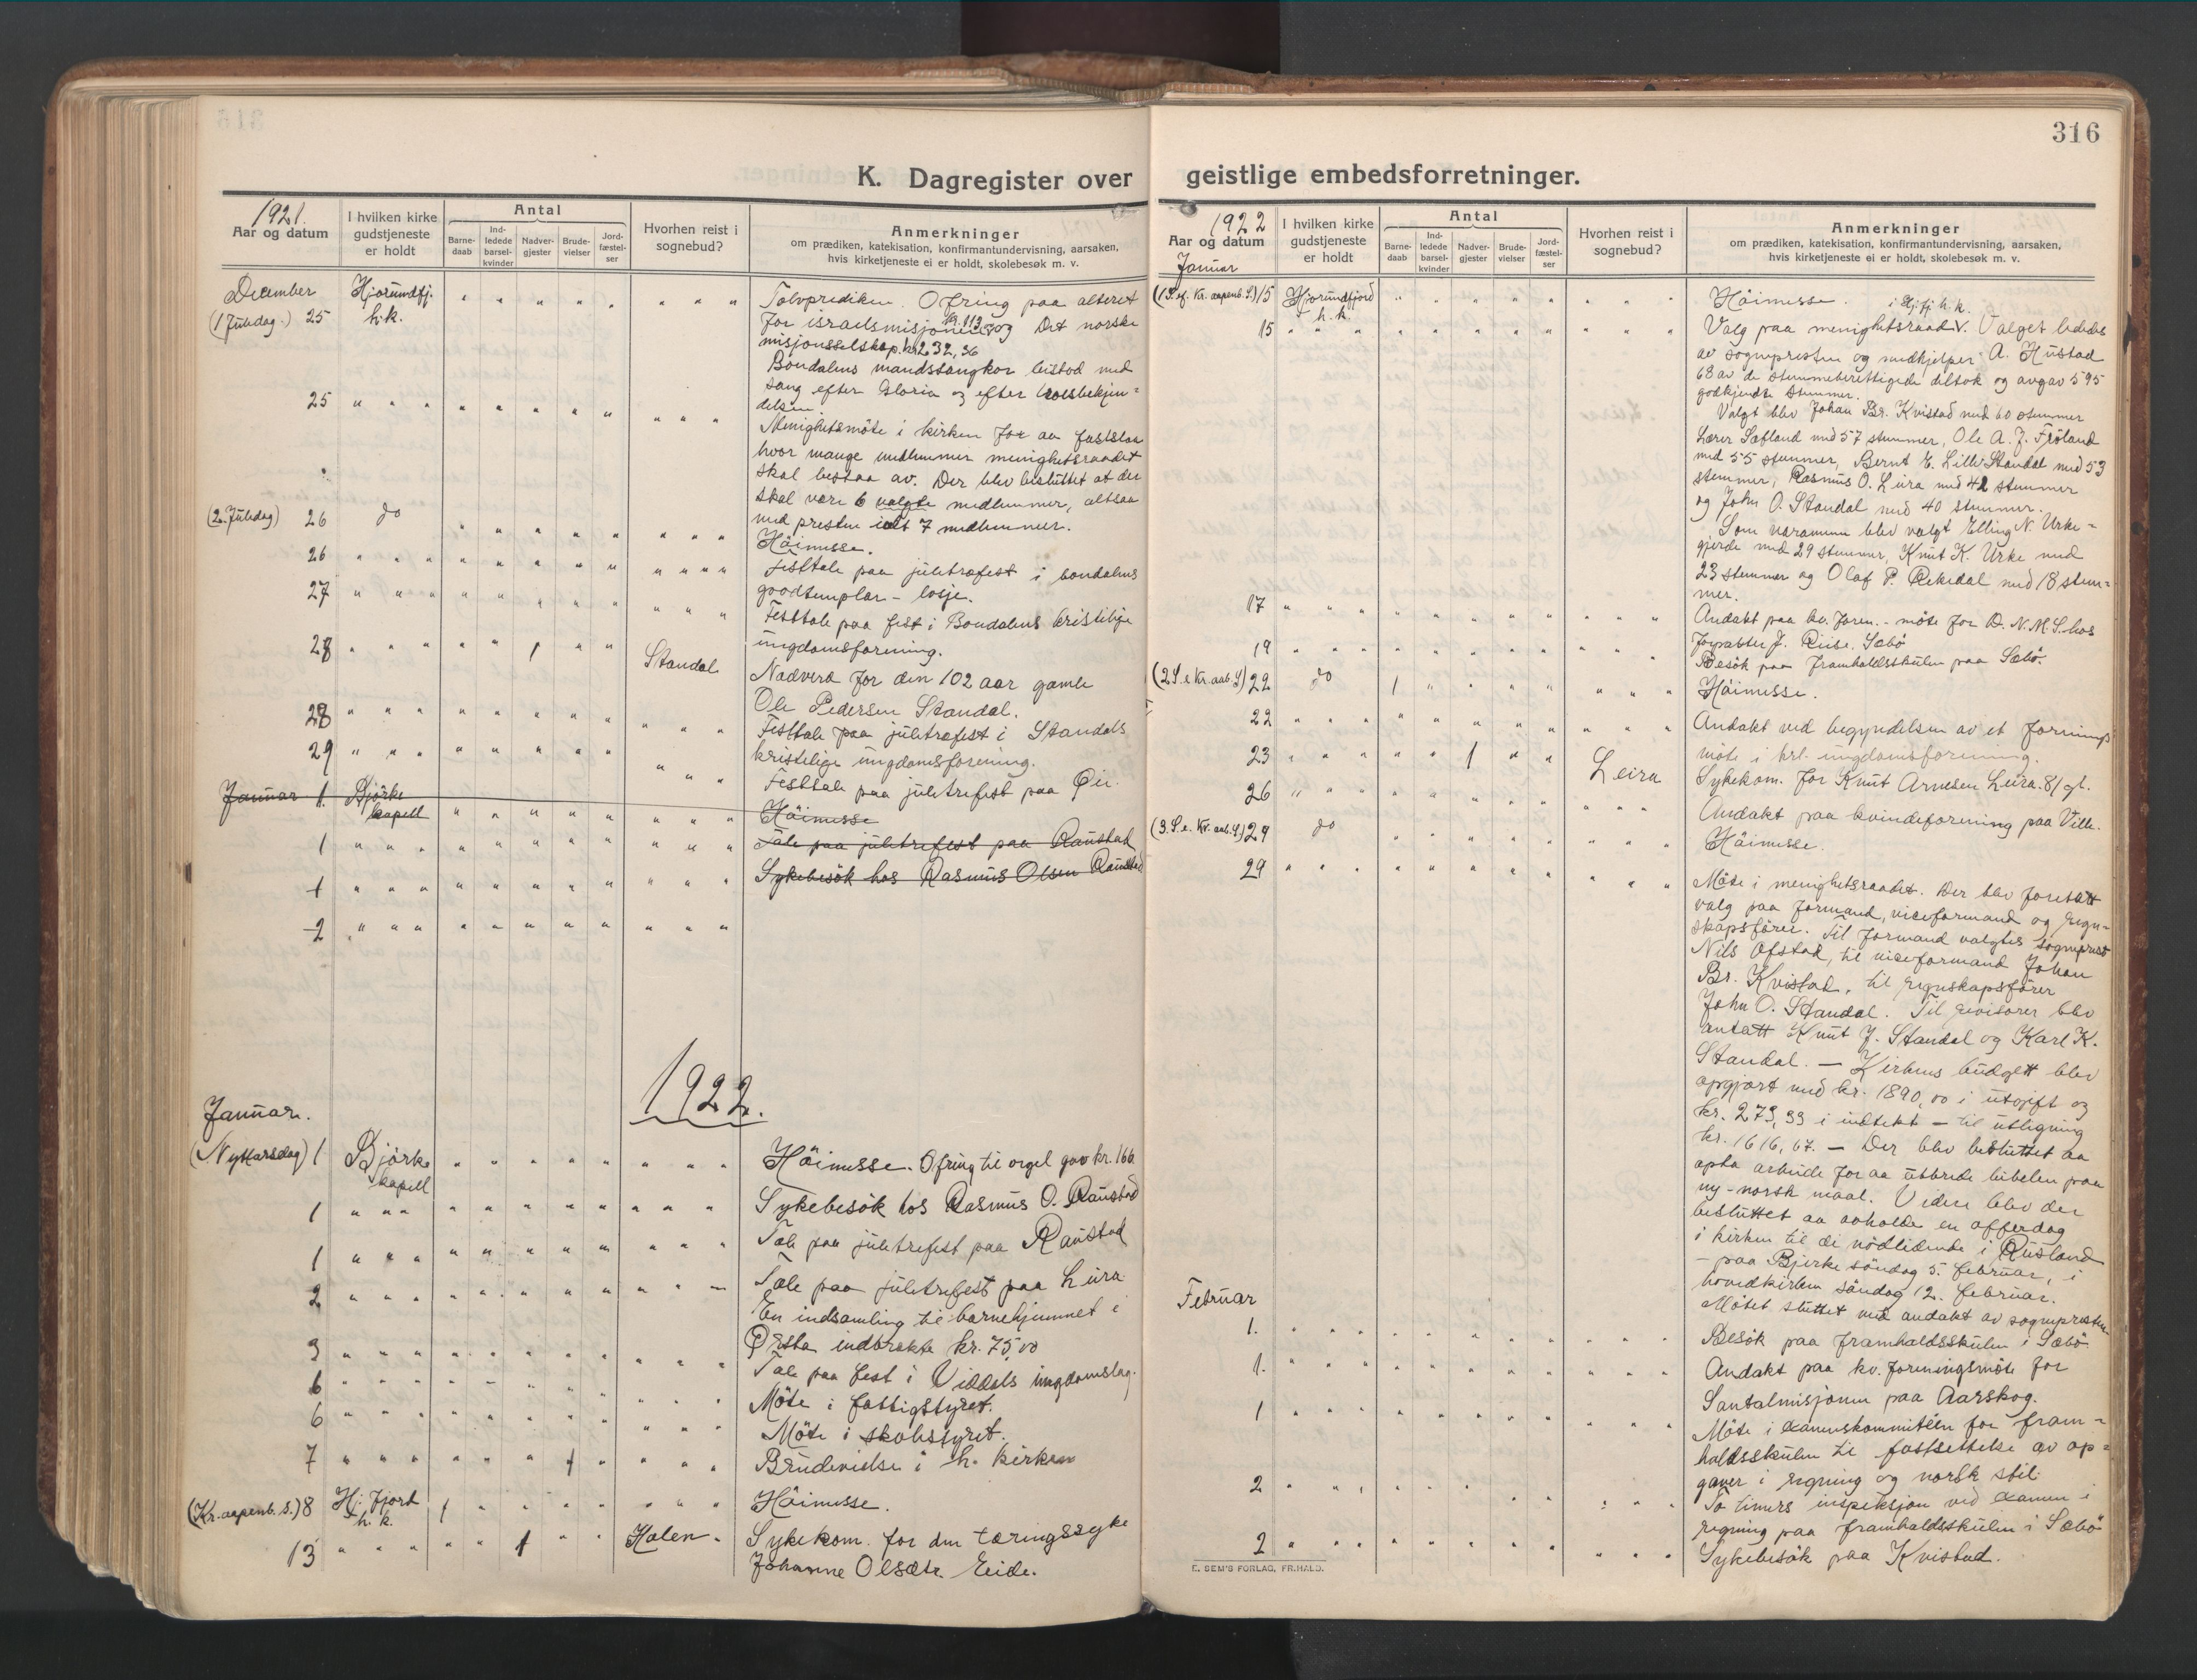 316
K. Dagregister over geistlige embedsforretninger.
1921.
Aar og datum
I hvilken kirke gudstjeneste er holdt
Antal
Barne-daab
Ind-ledede barsel-kvinder
Nadver-gjester
Brude-vielser
Jord-fæstel-ser
Hvorhen reist i sognebud?
Anmerkninger
om prædiken, katekisation, konfirmantundervisning, aarsaken,
hvis kirketjeneste ei er holdt, skolebesøk m. v.
December
(1 Juledag.) 25 Hjørundfj. h.k. Tolvprediken. Ofring paa alteret
for israelsmisjonen kr. 112 og Det norske
misjonsselskap kr 232,36
Bondalens mandssangkor bistod med
sang efter Gloria og efter troesbekjen=
delsen.
25 Menighetsmöte i kirken for aa fastslaa
hvor mange medlemmer menighetsraadet
skal bestaa av. Der blev besluttet at der
skal være 6 valgte medlemmer, altsaa
med presten ialt 7 medlemmer.
(2. Juledag) 26 do Höimesse.
26 Festtale paa juletræfest i bondalens
goodtemplar - losje.
27 Festtale paa fest i Bondalens kristelige
ungdomsforening.
28 1 Standal Nadverd for den 102 aar gamle
Ole Pedersen Standal.
28 Festtale paa juletræfest i Standals
kristelige ungdomsforening.
29 Festtale paa juletrefest paa Øie.
Januar 1. Björke kapell Höimesse
1 Tale paa juletrefest paa Raustad
1 Sykebesök hos Rasmus Olsen Raustad
2
1922.
Januar.
(Nyttarsdag) 1 Björke kapell Höimesse. Ofring til orgel gav kr. 166.
1 Sykebesök hos Rasmus O. Raustad
1 Tale paa juletrefest paa Raustad
2 Tale paa juletrefest paa Leira
En indsamling til barnehjemmet i
Ørsta indbrakte kr. 75,00
3 Tale paa fest i Viddals ungdomslag.
6 Möte i fattigstyret.
6 Möte i skolestyret.
7 1 Brudevielse i h. kirken
(Kr. aapenb. s.) 8 Hj.fjord h.k. 1 Höimesse.
13 1 Holen Sykekom. for den tæringssyke
Johanne Olsætr. Eide.
1922
Aar og datum
I hvilken kirke gudstjeneste er holdt
Antal
Barne-daab
Ind-ledede barsel-kvinder
Nadver-gjester
Brude-vielser
Jord-fæstel-ser
Hvorhen reist i sognebud?
Anmerkninger
om prædiken, katekisation, konfirmantundervisning, aarsaken,
hvis kirketjeneste ei er holdt, skolebesøk m. v.
Januar
(1 S. ef. Kr. aapenb. S.) 15 Hjørundfjord h.k. Höimesse.
15 Valg paa menighetsraad i Hj.fj. h.k. Valget lededes
av sognepresten og medhjelper A. Hustad
68 av de stemmeberettigede deltok og avgav 595
godkjendte stemmer.
Valgt blev Johan Br. Kvistad med 60 stemmer
Lærer Sætland med 57 stemmer, Ole A. J. Fröland
med 55 stemmer, Bernt E. Lille Standal med 53
stemmer, Rasmus O. Leira med 42 stemmer
og John O. Standal med 40 stemmer.
Som varamenn blev valgt Elling N. Urke=
gjerde med 29 stemmer, Knut K. Urke med
23 stemmer og Olaf P. Rekedal med 18 stem=
mer.
17 Andakt paa kv. foren. - möte for D. N. M. S. hos
J. Riise. Sæbö
19 Besök paa framhaldsskulen paa Sæbö.
(2 S. e Kr. aab. S) 22 do 1 Höimesse.
22 Andakt ved begyndelsen av et forenings
möte i krl. ungdomsforening.
23 1 Leira Sykekom. for Knut Arnesen Leira. 81 gl.
26 Andakt paa kvindeforening paa Ville.
(3. S. e. Kr. aab. S) 29 do Höimesse.
29 Möte i menighetsraadet. Der blev foretatt
valg paa formand, viceformand og regn=
skapsfører. Til formand valgtes sogneprest
Nils Ofstad, til viceformand Johan
Br. Kvistad, til regnskapsfører
John O. Standal. Til revisorer blev
antatt Knut J. Standal og Karl K.
Standal. — Kirkens budgett blev
opgjort med kr. 1890,00 i utgift og
kr. 273,33 i indtekt — til utligning
kr. 1616,67. — Der blev besluttet aa
opta arbeide for aa utbrede bibelen paa
ny-norsk maal. Videre blev der
besluttet aa avholde en offerdag
i kirken til de nödlidende i Rusland
— paa Bjerke söndag 5. februar, i
hovedkirken söndag 12. februar.
Mötet sluttet med andakt av sognepresten
Februar
1. Besök paa framhaldsskulen i Sæbö
1. Andakt paa kv. foreningsmöte for
Santalmisjonen paa Aarskog.
1 Möte i examenskommitéen for fram=
haldsskulen til fastsettelse av op=
gaver i regning og norsk stil
2 To timers inspeksjon ved examen i
regning paa framhaldsskulen i Sæbö
2 Sykebesök paa Kvistad.
E. SEM'S FORLAG, FR.HALD.